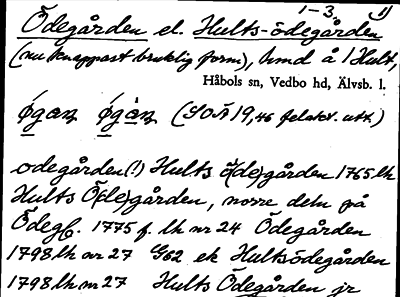 1-3, 1)
Ödegården el. Hults-ödegården
(nu knappast bruklig form), hmd å 1 Hult,
Håbols sn, Vedbo hd, Älvsb. l.
øgaɳ øgàɳ (SOÄ 19,46 felakt. utt.)
odegården(!) Hults ö(de)gården 1765 lh
Hults Ö(de)gården, norre deln på
Ödegɓ. 1775 f. lh nr 24 Ödegården
1798 lh nr 27 G62 ek Hultsödegården
1798 lh nr 27 Hults Ödegården jr